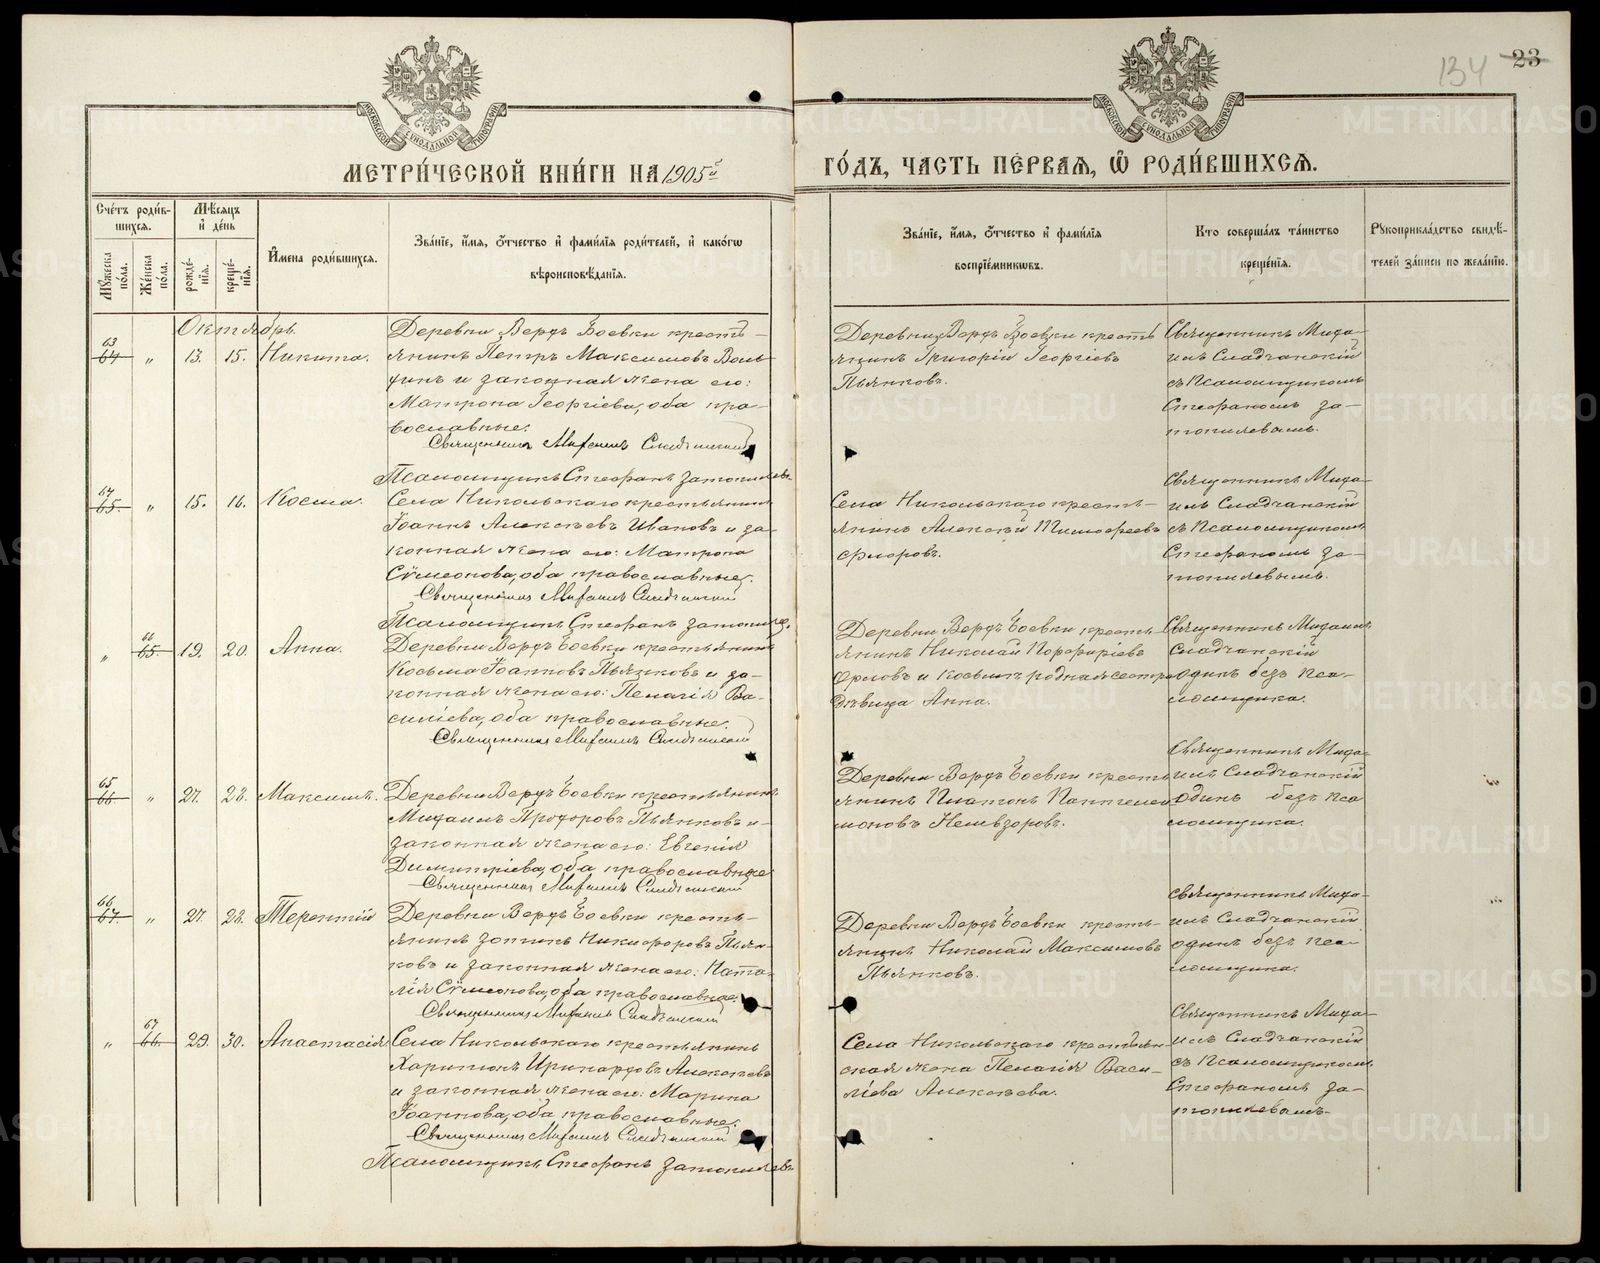 134 23
МЕТРИ́ЧЕСКОЙ КНИ́ГИ НА 1905й
ГО́ДЪ, ЧАСТЬ ПЕ́РВАЯ, Ѡ҆ РОДИ́ВШИХСЯ.
Сче́тъ роди́в-
шихся.
Мꙋ́жеска по́ла.
Же́нска по́ла.
Мѣ́сяцъ
и҆ де́нь
рожде́-нїя.
креще́-нїя.
И҆мена роди́вшихся.
Зва́нїе, и҆́мя, ѻ҆́тчество и҆ фами́лїя роди́телей, и҆ како́гѡ
вѣроисповѣ́данїя.
Зва́нїе, и҆́мя, ѻ҆́тчество и҆ фами́лїя
воспрїе́мникѡвъ.
Кто̀ соверша́лъ та́инство
креще́нїя.
Рꙋкоприкла́дство свидѣ́-
телей за́писи по жела́нїю.
Октябрь.
63
64 " 13. 15. Никита.
Деревни Верхъ Боевки кресть-
янинъ Петръ Максимовъ
и законная жена его:
Матрона Георгіева, оба пра-
вославные.
Священникъ Михаилъ Сладчанскій
Псаломщикъ Стефанъ Затопляевъ
Деревни Верхъ Боевки кресть
янинъ Григорій Георгіевъ
Пьянковъ.
Священникъ Миха-
илъ Сладчанскій
съ Псаломщикомъ
Стефаномъ За-
топляевымъ.
64
65. " 15. 16. Косма.
Села Никольскаго крестьянинъ
Іоаннъ Алексѣевъ Ивановъ и за-
конная жена его: Матрона
Сѵмеонова, оба православные.
Священникъ Михаилъ Сладчанскій
Псаломщикъ Стефанъ
Села Никольскаго кресть-
янинъ Алексѣй Тимофеевъ
Фроловъ.
Священникъ Миха-
илъ Сладчанскій
съ Псаломщикомъ
Стефаномъ За-
топляевымъ.
66
" 65. 19. 20. Анна.
Деревни Верхъ Боевки крестьянинъ
Косьма Іоанновъ Пьянковъ и за-
конная жена его: Пелагія Ва-
силіева, оба православные.
Священникъ Михаилъ Сладчанскій
Деревни Верхъ Боевки кресть-
янинъ Николай Порфиріевъ
Орловъ и Косьмы родная сестра
дѣвица Анна.
Священникъ Михаилъ
Сладчанскій
одинъ безъ пса-
ломщика.
65
66 " 27. 28. Максимъ.
Деревни Верхъ Боевки крестьянинъ
Михаилъ Прохоровъ Пьянковъ и
законная жена его: Евгенія
Димитріева, оба православные
Священникъ Михаилъ Сладчанскій
Деревни Верхъ Боевки кресть
янинъ Платонъ Пантелей-
моновъ Немвзоровъ.
Священникъ Миха-
илъ Сладчанскій
одинъ безъ пса
ломщика.
66
67. " 27. 28. Терентій
Деревни Верхъ Боевки кресть-
янинъ Зотикъ Никифоровъ Пьян-
ковъ и законная жена его: Ната-
лія Сѵмеонова, оба православные.
Священникъ Михаилъ Сладчанскій
Деревни Верхъ Боевки кресть-
янинъ Николай Максимовъ
Пьянковъ.
Священникъ Миха-
илъ Сладчанскій
одинъ безъ пса-
ломщика.
67
" 66. 29. 30. Анастасія
Села Никольскаго крестьянинъ
Харитонъ Алексѣевъ
и законная жена его: Марина
Іоаннова, оба православные.
Священникъ Михаилъ Сладчанскій
Псаломщикъ Стефанъ Затопляевъ
Села Никольскаго крестьян-
ская жена Пелагія Васи-
ліева Алексѣева.
Священникъ Миха-
илъ Сладчанскій
съ Псаломщикомъ
Стефаномъ За-
топляевымъ.
METRIKI.GASO-URAL.RU